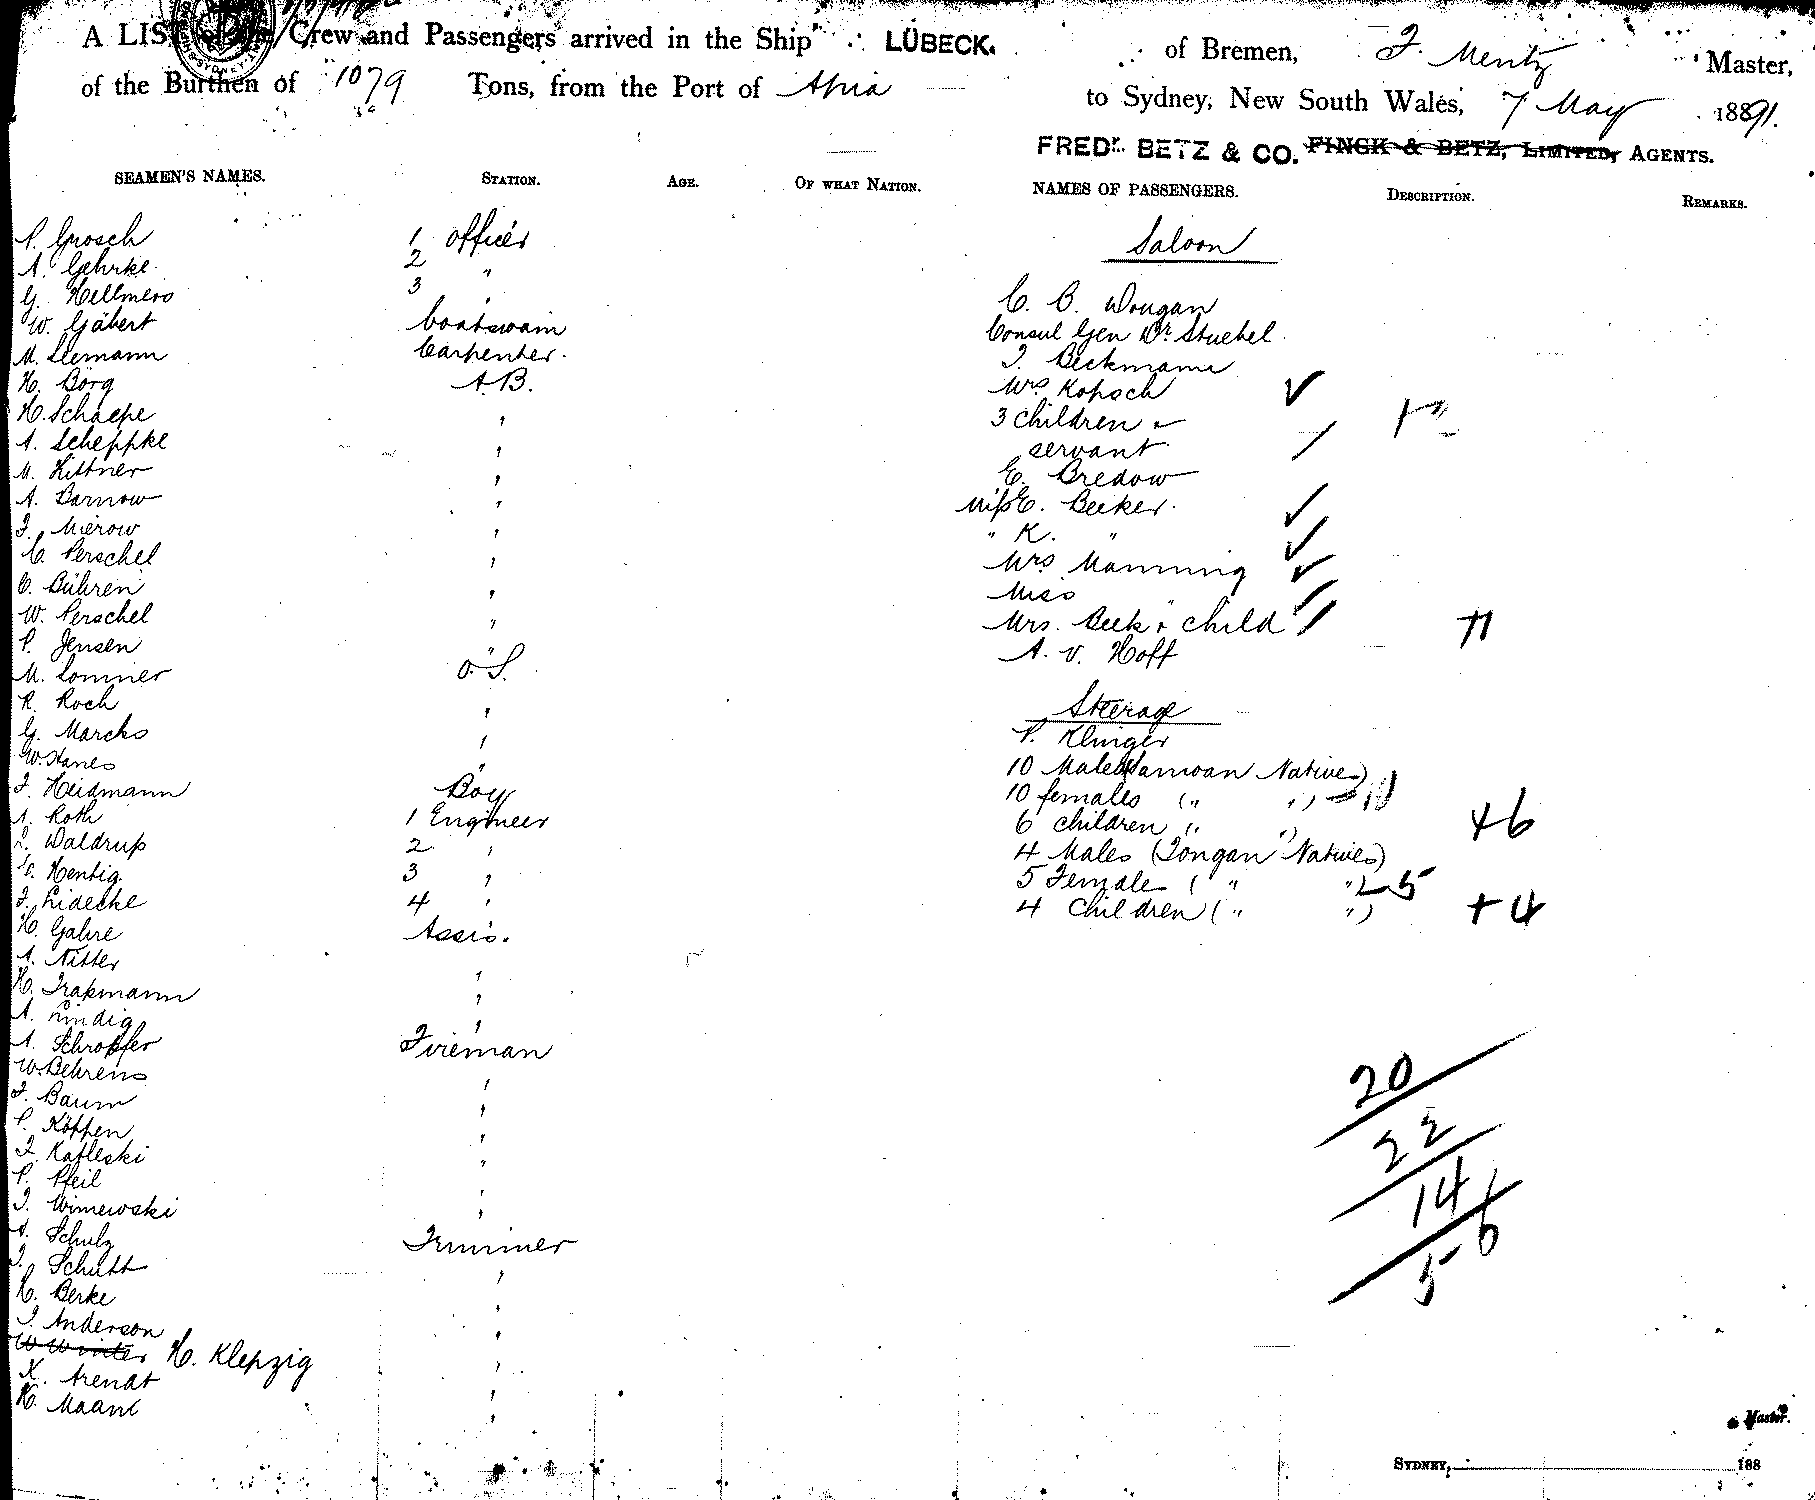 A LIST of the Crew and Passengers arrived in the Ship LÜBECK. of Bremen, F. Mentz Master,
of the Burthen of 1079 Tons, from the Port of Apia to Sydney, New South Wales, 7 May 1891.
FREDK. BETZ & CO. FINCK & BETZ, LIMITED, AGENTS.
SEAMEN'S NAMES. STATION. AGE. OF WHAT NATION.
P. Grosch 1 officer
A. Gehrke 2 "
G. Hellmers 3 "
W. Gäbert Boatswain
M. Siemann Carpenter.
H. Börg A.B.
H. Schaepe "
A. Scheppke "
M. Kittner "
A. Barnow "
F. Mierow "
C. Perschel "
C. Bühren "
W. Perschel "
P. Jensen "
M. Sommer O.S.
R. Koch "
G. Marcks "
W. Hanes "
F. Heidmann Boy
A. Roth 1 Engineer
Waldrup 2 "
Hentig 3 "
F. Lidecke 4 "
H. Gahre Assis.
A. Nitter "
H. Trapmann "
A. Lindig "
A. Schropfer Fireman
W. Behrens "
F. Baum "
P. Köppen "
F. Kafleski "
P. Pfeil "
Winiewski "
A. Schulz Trimmer
Schutt "
H. Berke "
Anderson "
W Winter H. Klepzig "
X. Arendt "
H. Maant "
NAMES OF PASSENGERS. DESCRIPTION. REMARKS.
Saloon
C. B. Wougan
Consul Gen Dr. Stuebel
Beckmann
Mrs Kopsch
3 children &
servant
E. Bredow
Miss E. Becker.
" K. "
Mrs Manning
Miss "
Mrs. Beck & child
A. v. Hoff
Steerage
P. Klinger
10 Males (Samoan Natives)
10 females (" ")
6 children (" ")
+6
4 Males (Tongan Natives)
5 Female (" ") 5
4 Children (" ") +4
20
22
14 6
5
Master.
SYDNEY, 188